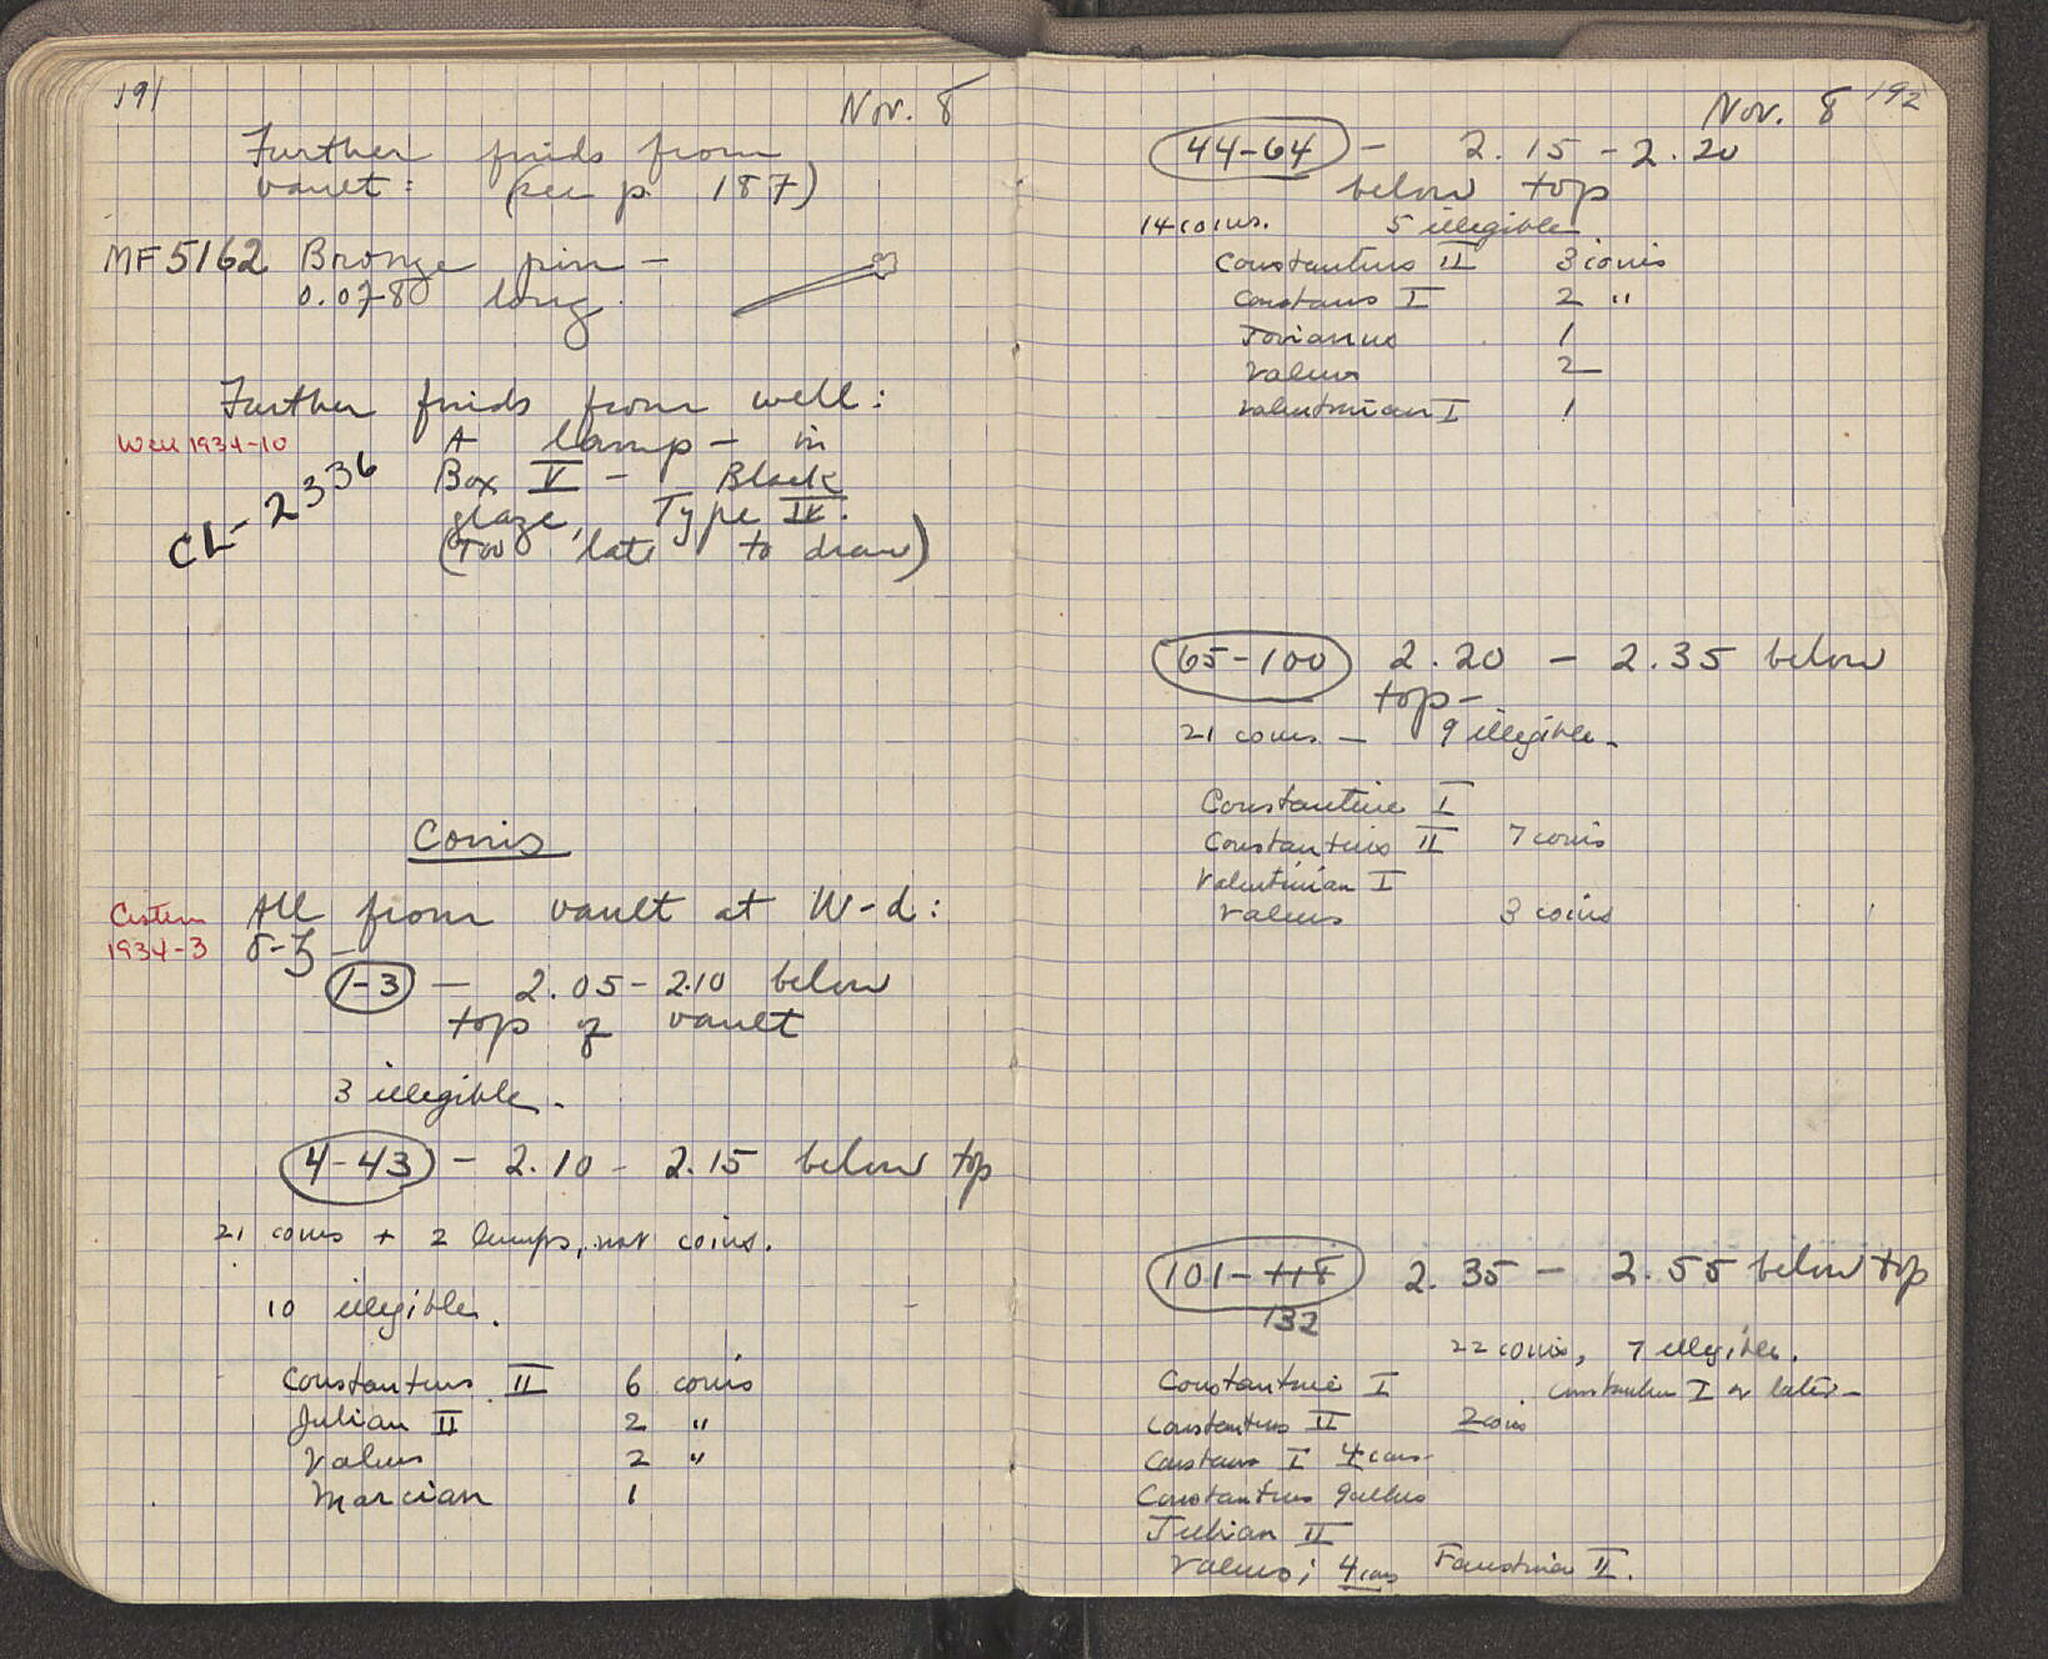 191
Nov. 8
Further finds from
vault: (see p. 187)
MF 5162 Bronze pin —
0.078 long.
Further finds from well:
Well 1934-10
A lamp — in
Box V — Black
glaze, Type IV.
(Too late to draw)
CL-2336
Coins
Cistern
1934-3
All from vault at W-d:
8-3 —
1-3 — 2.05 - 2.10 below
top of vault
3 illegible.
4-43 — 2.10 - 2.15 below top
21 coins + 2 lumps, not coins.
10 illegible.
Constantius II 6 coins
Julian II 2 "
Valens 2 "
Marcian 1
Nov. 8 192
44-64 — 2.15 - 2.20
below top
14 coins. 5 illegible
Constantius II 3 coins
Constans I 2 "
Jovianus 1
Valens 2
Valentinian I 1
65-100 2.20 — 2.35 below
top —
21 coins — 9 illegible —
Constantine I
Constantius II 7 coins
Valentinian I
Valens 3 coins
101-118 2.35 — 2.55 below top
132
22 coins, 7 illegible.
Constantine I Constantine I or later —
Constantius II 2 coins
Constans I 4 coins
Constantius Gallus
Julian II
Valens; 4 coins Faustina II.